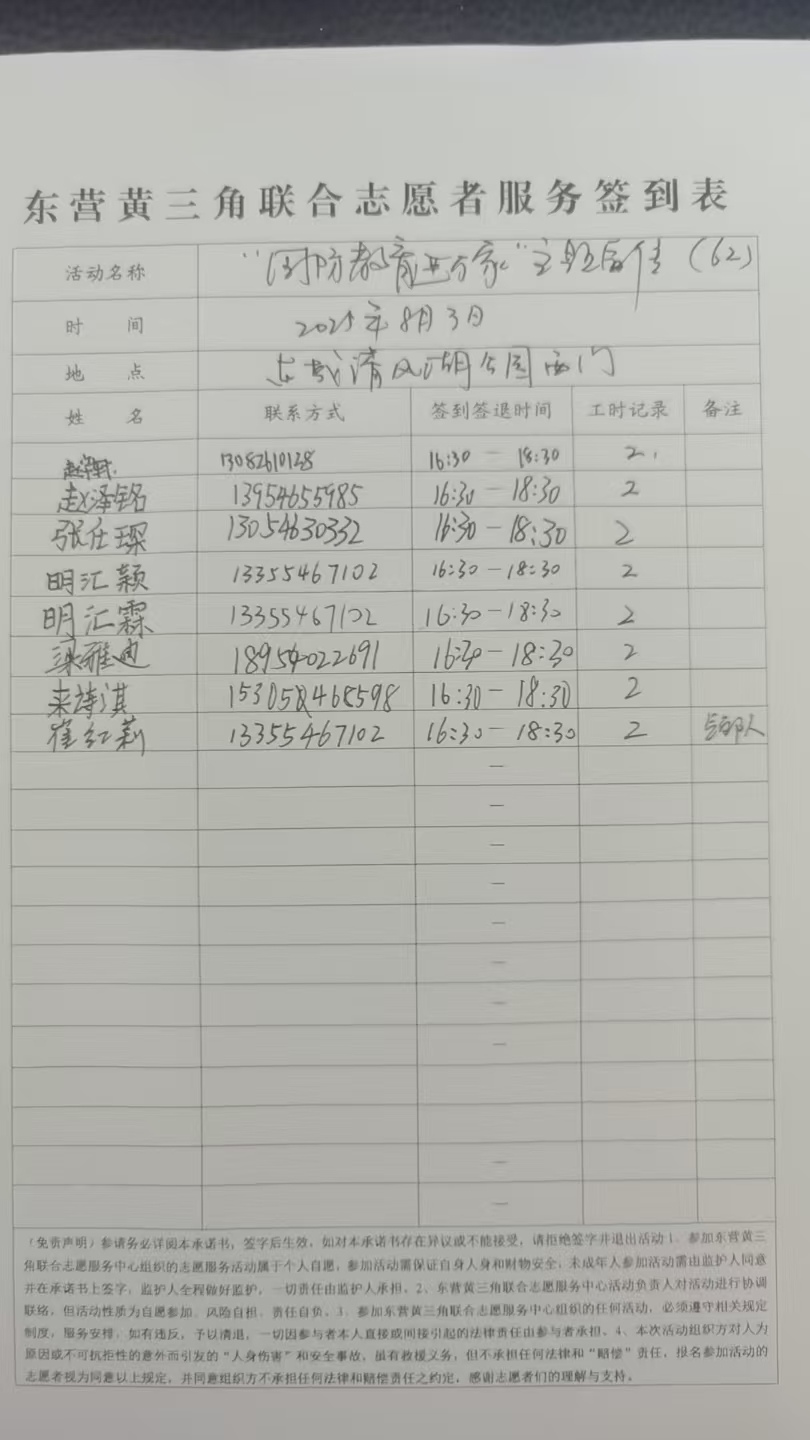 东营黄三角联合志愿者服务签到表
活动名称 "国防教育进万家"主题宣传（62）
时 间 2025年8月3日
地 点 东城清风湖公园西门
姓 名 联系方式 签到签退时间 工时记录 备注
13082610128 16:30 — 18:30 2
赵泽铭 13954655985 16:30 — 18:30 2
张任璨 13054630332 16:30 — 18:30 2
明汇颖 13355467102 16:30 — 18:30 2
明汇霖 13355467102 16:30 — 18:30 2
梁雅迪 18954022691 16:30 — 18:30 2
来诗淇 16:30 — 18:30 2
崔红莉 13355467102 16:30 — 18:30 2 负责人
—
—
—
—
—
—
—
—
—
—
（免责声明）参请务必详阅本承诺书，签字后生效，如对本承诺书存在异议或不能接受，请拒绝签字并退出活动1、参加东营黄三
角联合志愿服务中心组织的志愿服务活动属于个人自愿，参加活动需保证自身人身和财物安全，未成年人参加活动需由监护人同意
并在承诺书上签字，监护人全程做好监护，一切责任由监护人承担。2、东营黄三角联合志愿服务中心活动负责人对活动进行协调
联络，但活动性质为自愿参加、风险自担、责任自负。3、参加东营黄三角联合志愿服务中心组织的任何活动，必须遵守相关规定
制度，服务安排，如有违反，予以清退，一切因参与者本人直接或间接引起的法律责任由参与者承担。4、本次活动组织方对人为
原因或不可抗拒性的意外而引发的“人身伤害”和安全事故，虽有救援义务，但不承担任何法律和“赔偿”责任，报名参加活动的
志愿者视为同意以上规定，并同意组织方不承担任何法律和赔偿责任之约定，感谢志愿者们的理解与支持。